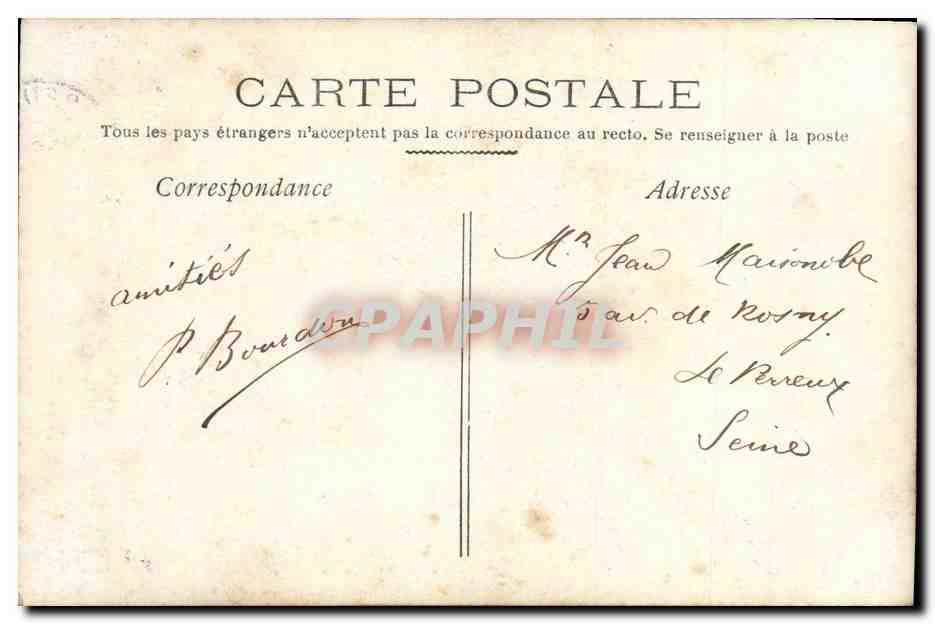 CARTE POSTALE
Tous les pays étrangers n'acceptent pas la correspondance au recto. Se renseigner à la poste
Correspondance
Adresse
amitiés
P. Bourdon
Mr. Jean Maisonobe
5 av. de Rosny.
Le Perreux
Seine
CPAPHIL